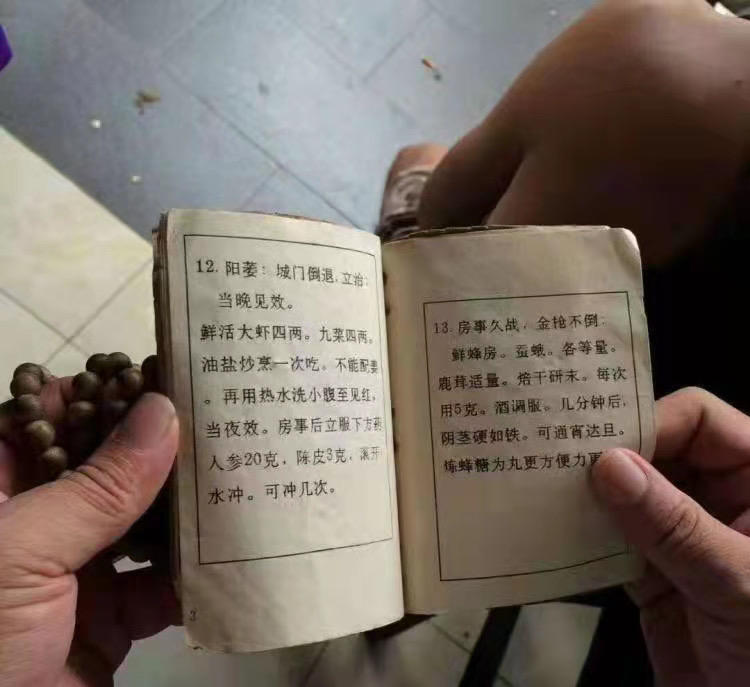 12. 阳萎：城门倒退,立治；
当晚见效。
鲜活大虾四两。九菜四两。
油盐炒烹一次吃。不能配姜
。再用热水洗小腹至见红，
当夜效。房事后立服下方药
人参20克，陈皮3克，滚开
水冲。可冲几次。
3
13. 房事久战，金枪不倒：
鲜蜂房。蚕蛾。各等量。
鹿茸适量。焙干研末。每次
用5克。酒调服。几分钟后，
阴茎硬如铁。可通宵达旦。
炼蜂糖为丸更方便力